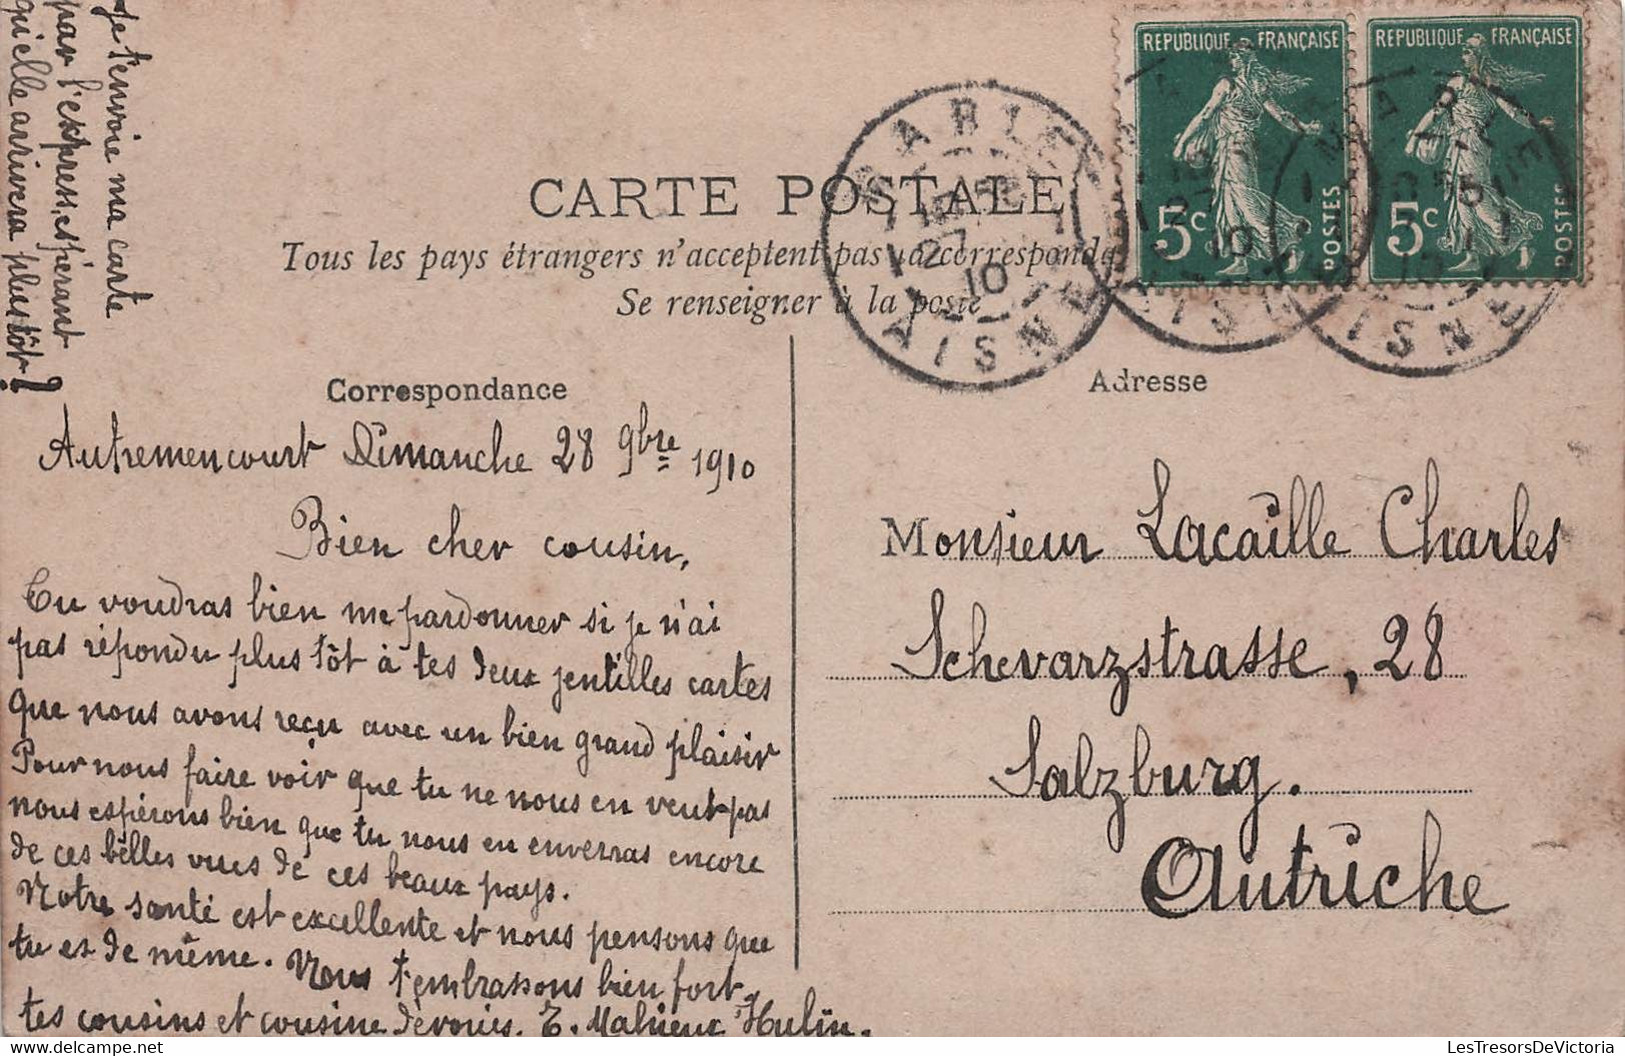 Je t'envoie ma carte
par l'express, espérant
qu'elle arrivera plus tôt !
REPUBLIQUE FRANÇAISE
5c
POSTES
REPUBLIQUE FRANÇAISE
5c
POSTES
MARLE
27
10
AISNE
MARLE
10
AISNE
MARLE
AISNE
CARTE POSTALE
Tous les pays étrangers n'acceptent pas la corresponda
Se renseigner à la poste
Correspondance
Autremencourt Dimanche 28 9bre 1910
Bien cher cousin,
Tu voudras bien me pardonner si je n'ai
pas répondu plus tôt à tes deux jentilles cartes
que nous avons reçu avec un bien grand plaisir
Pour nous faire voir que tu ne nous en veut pas
nous espérons bien que tu nous en enverras encore
de ces bèlles vues de ces beaux pays.
Notre santé est excellente et nous pensons que
tu es de même. Nous t'embrassons bien fort.
tes cousins et cousine dévoués. E. Mahieux Hulin.
Adresse
Monsieur Lacaille Charles
Schevarzstrasse, 28
Salzburg.
Autriche
LesTresorsDeVictoria